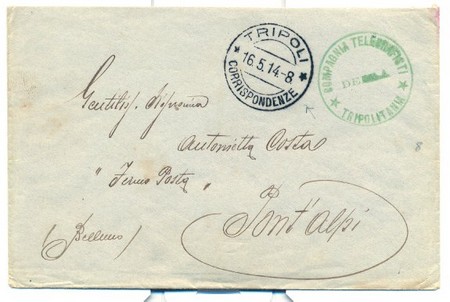 TRIPOLI
16.5.14-8
CORRISPONDENZE
COMPAGNIA TELEGRAFISTI
TRIPOLITANIA
Antonietta Costa
"Fermo Posta"
Pont' Alpi
(Belluno)
8